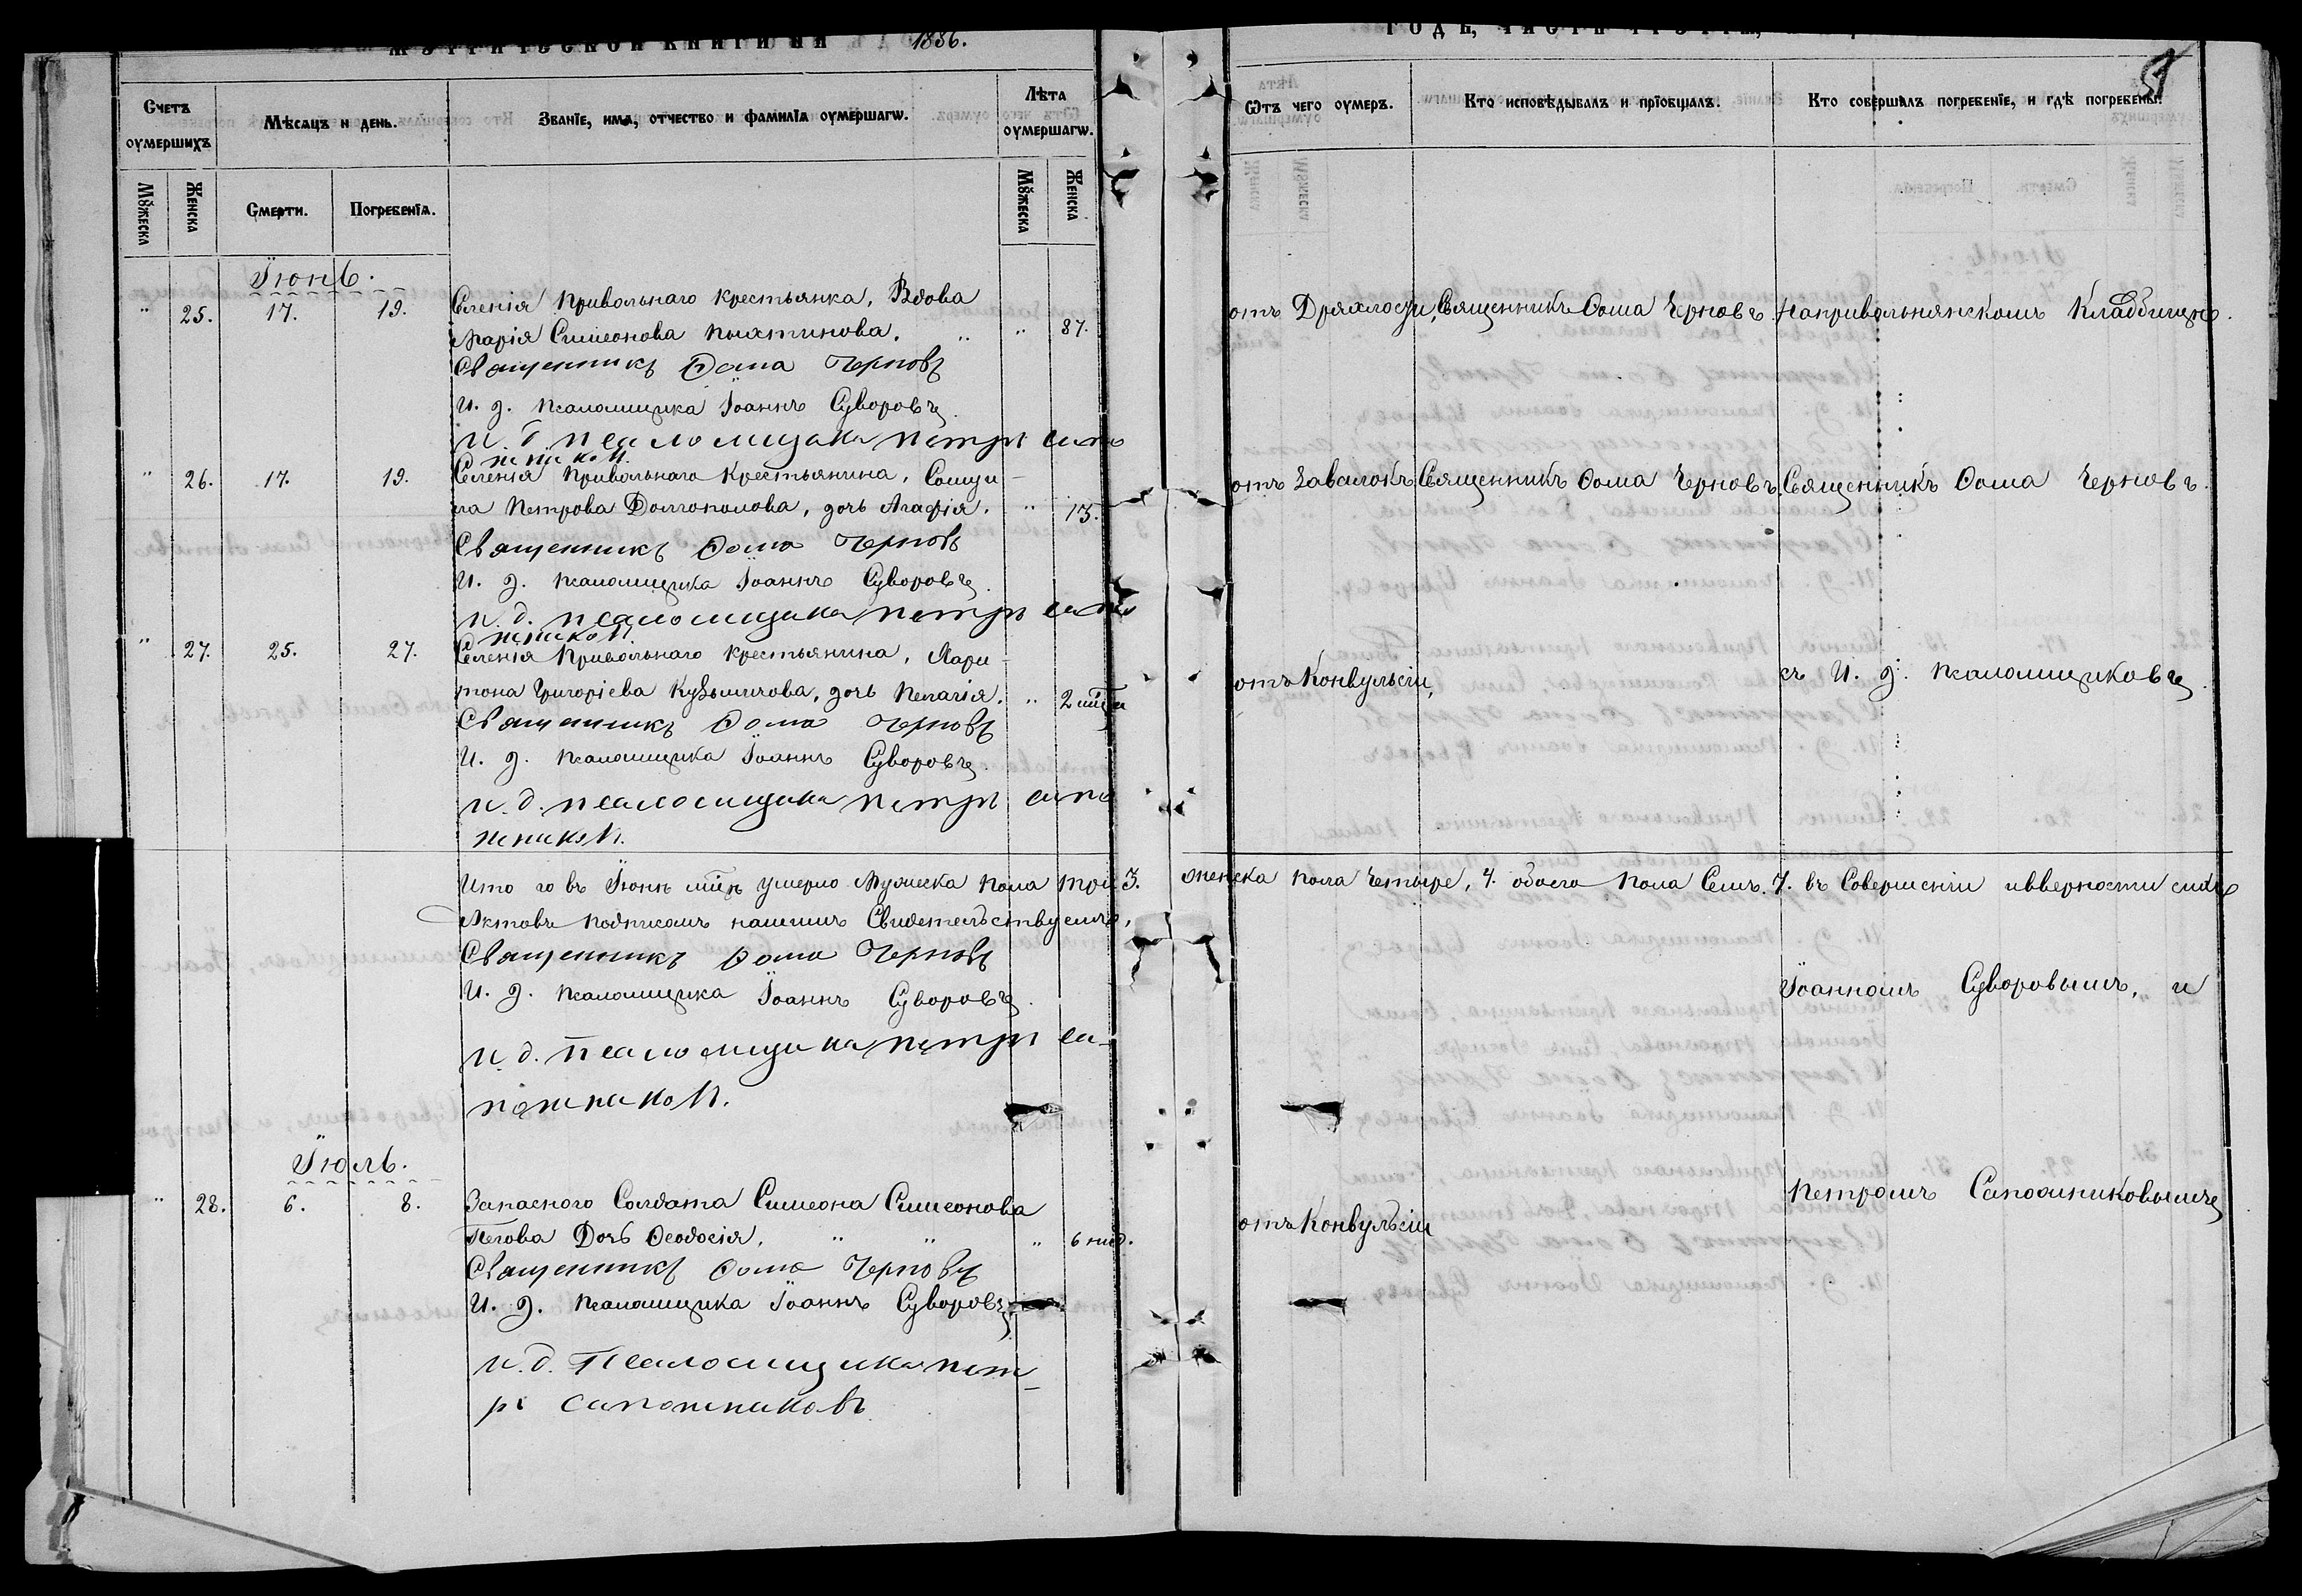 1886.
Счетъ оумершихъ
Мѣсяцъ и день.
Званїе, имя, отчество и фамилїя оумершагѡ.
Лѣта оумершагѡ.
Мꙋжеска
Женска
Смерти.
Погребенїя.
Мꙋжеска
Женска
Ѿтъ чего оумеръ.
Кто исповѣдывалъ и прїобщалъ.
Кто совершалъ погребенїе, и гдѣ погребены.
Їюнь.
" 25. 17. 19. Селенія Привольнаго Крестьянка, Вдова
Марія Симеонова " " 87.
Священникъ Ѳома Черновъ
И. д. Псаломщика Іоаннъ Суворовъ
и. д. псаломщика петръ сапо
жниковъ.
отъ Дряхлости, Священникъ Ѳома Черновъ. На привольнянскомъ Кладбищѣ.
" 26. 17. 19. Селенія Привольнаго Крестьянина,
Петрова Долгополова, дочь Агафія. " 13.
Священникъ Ѳома Черновъ
И. д. Псаломщика Іоаннъ Суворовъ.
и. д. псаломщика петръ сапо
жниковъ
отъ Священникъ Ѳома Черновъ. Священникъ Ѳома Черновъ.
" 27. 25. 27. Селенія Привольнаго Крестьянина, Хари-
тона Григоріева Кузьмичова, дочь Пелагія. " 2 мцн
Священникъ Ѳома Черновъ
И. д. Псаломщика Іоаннъ Суворовъ.
и. д. псаломщика петръ сапо
жниковъ.
отъ Конвульсіи,
съ И. д. Псаломщиковъ
Итого въ Іюнѣ мцѣ умерло Мужеска пола три 3. женска пола четыре, 4. обоего пола Семь. 7. въ Совершеніи и вѣрности сихъ
Актовъ подписомъ нашимъ Свидетельствуемъ.
Священникъ Ѳома Черновъ
И. д. Псаломщика Іоаннъ Суворовъ.
и. д. псаломщика петръ са-
пожниковъ.
Іоанномъ Суворовымъ, и
Їюль.
" 28. 6. 8. Запаснаго Солдата Симеона Симеонова
Пегова Дочь Ѳеодосія. " " " 6 нид.
Священникъ Ѳома Черновъ
И. д. Псаломщика Іоаннъ Суворовъ
и. д. Псаломщика пет-
ръ сапожниковъ
отъ Конвульсіи
Петромъ Сапожниковымъ